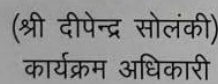 (श्री दीपेन्द्र सोलंकी)
कार्यक्रम अधिकारी